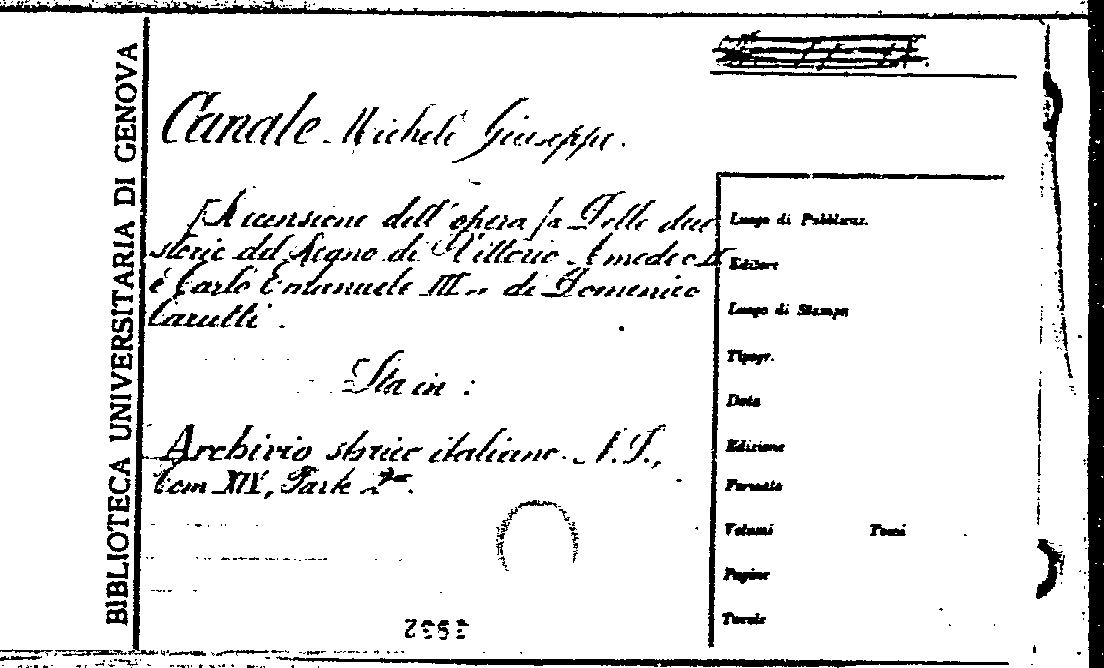 BIBLIOTECA UNIVERSITARIA DI GENOVA
Canale Michele Giuseppe.
[Recensione dell'opera fa Delle due
storie del Regno di Vittorio Amedeo II
e Carlo Emanuele III" di Domenico
Carutti.
Sta in:
Archivio storico italiano. N.S.,
Tom XIV, Parte 2ª.
Luogo di Pubblicaz.
Editore
Luogo di Stampa
Tipogr.
Data
Edizione
Formato
Volumi Tomi
Pagine
Tavole